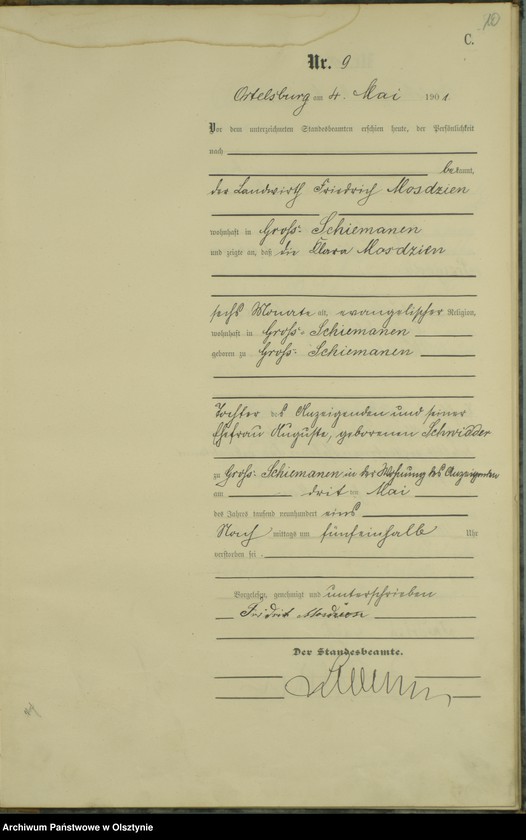 100
C.
Nr. 9
Ortelsburg am 4. Mai 1901
Vor dem unterzeichneten Standesbeamten erschien heute, der Persönlichkeit
nach
bekannt,
der Landwirth Friedrich Mosdzien
wohnhaft in Groß-Schiemanen
und zeigte an, daß die Klara Mosdzien
sechs Monate alt, evangelischer Religion,
wohnhaft in Groß-Schiemanen
geboren zu Groß-Schiemanen
Tochter des Anzeigenden und seiner
Ehefrau Auguste, geborenen Schwidder
zu Groß-Schiemanen in der Wohnung des Anzeigenden
am drit ten Mai
des Jahres tausend neunhundert eins
Nach mittags um fünfeinhalb Uhr
verstorben sei.
Vorgelesen, genehmigt und unterschrieben
Fridrich Mosdzien
Der Standesbeamte.
Archiwum Państwowe w Olsztynie